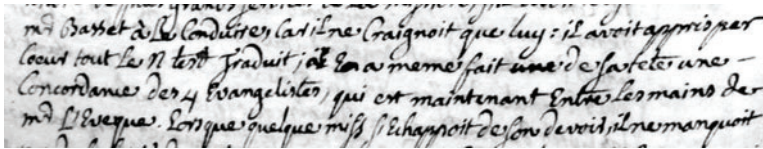 mr Basset à le Conduire, Car il ne Craignoit que luy : il avoit appris per
Coeur tout le N test traduit ; il En a meme fait une de sa teste une –
Concordance des 4 Evangelistes, qui est maintenant Entre les mains de
mr L'Eveque. Lorsque quelque miss. s'Echappoit de son devoir, il ne manquoit